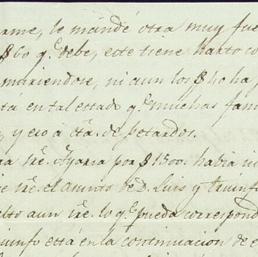 arme, le mandé otra muy fue
$60 q.e debe, este tiene harto co
muriendose, ni aun los $40 ha p
ta en tal estado q.e muchas fam
, y eso á cta. de petardos.
ra tre. por $1500. habia
tre. el amito de D. Luis y triunfo
lto aun tre. lo q.e pueda correspond
iunfo está en la continuacion de e